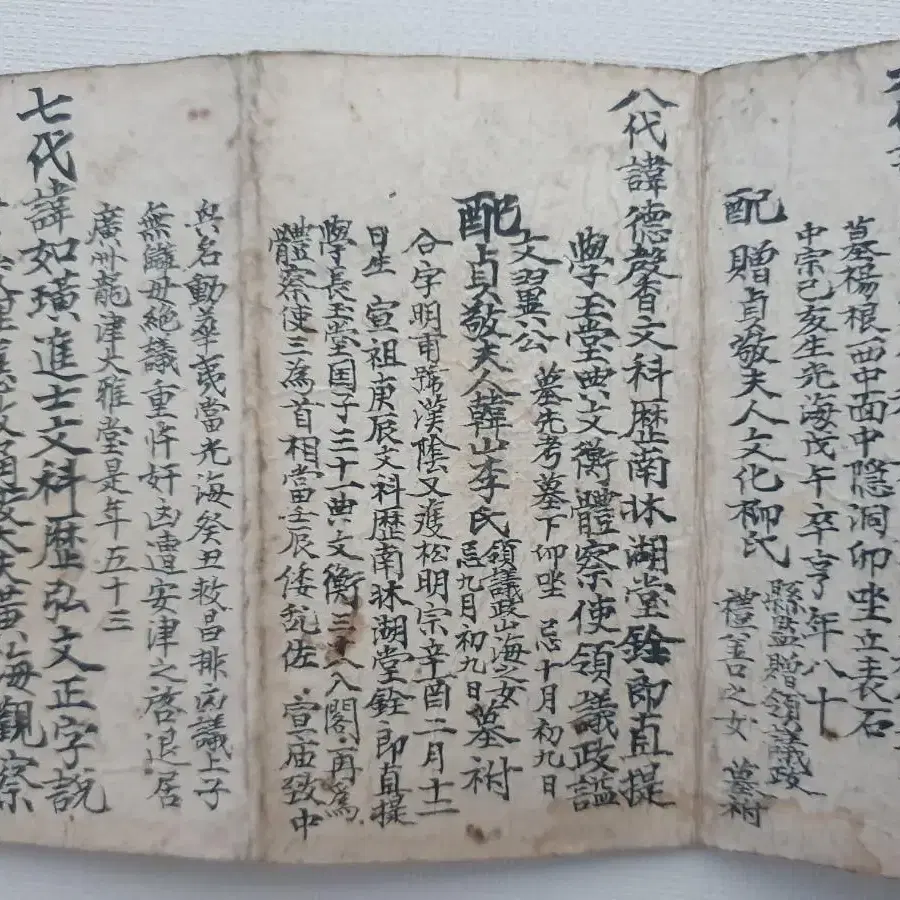 墓楊根西中面中隱洞卯坐立表石
中宗己亥生光海戊午卒享年八十
配贈貞敬夫人文化柳氏
縣監贈領議政
禮善之女 墓祔
八代諱德馨文科歷南牀湖堂銓郎直提
學玉堂典文衡體察使領議政謚
文翼公 墓先考墓下卯坐 忌十月初九日
配貞敬夫人韓山李氏
領議政山海之女
忌九月初九日
墓祔
合字明甫號漢陰又雙松明宗辛酉二月十二
日生 宣祖庚辰文科歷南牀湖堂銓郎直提
學長玉堂国子三十一典文衡三十八入閣再為
體察使三為首相當壬辰倭乱佐 宣庙致中
興名動華夷當光海癸丑救昌排凶議上子
無讎母絶議重忤奸凶遭安津之啓退居
廣州龍津大雅堂是年五十三
七代諱如璜進士文科歷弘文正字説
黄海觀察